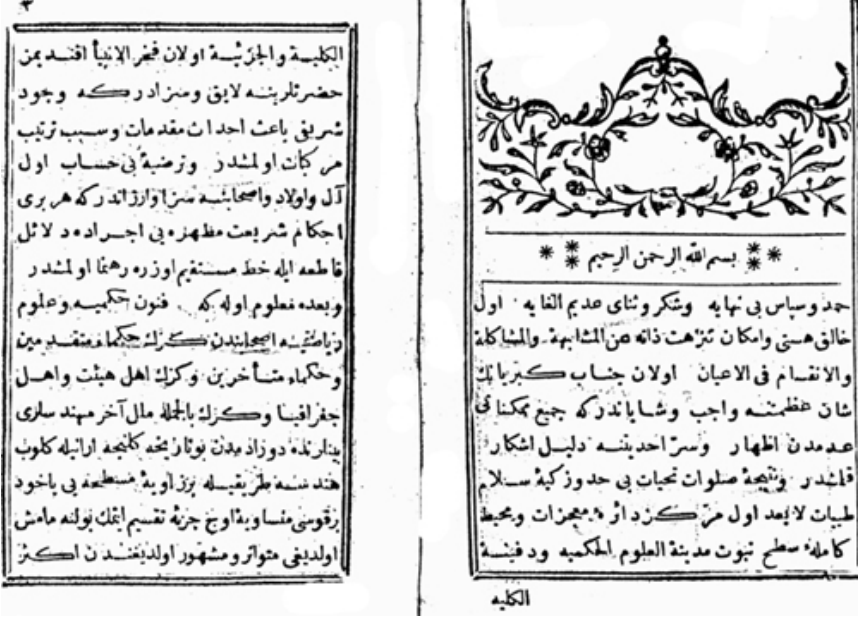 بسم الله الرحمن الرحيم
حمد وسپاس بی نهایه وشکر وثنای عدیم الغایه اول
خالق هستی وامکان تنزهت ذاته عن المشابهة والمشاکلة
والانقسام فی الاعیان اولان جناب کبریانك
شان عظمتنه واجب وشایاندرکه جمیع ممکناتی
عدمدن اظهار وسر احدیتنه دلیل اشکار
قلمشدر ونتیجهٔ صلوات تحیات بی حد وزکیهٔ سلام
طیبات لابعد اول مرکز دائرهٔ معجزات ومحیط
کاملهٔ سطح نبوت مدینة العلوم الحکمیه ودفینة
الکلیه
٣
الکلیة والجزئیة اولان فخر الانبیأ افندیمز
حضرتلرینه لایق وسزادرکه وجود
شریفی باعث احداث مقدمات وسبب ترتیب
مرکبات اولمشدر وترضیهٔ بی حساب اول
آل واولاد واصحابنه سزاوارزاندرکه هر بری
احکام شریعت مطهره یی اجراده دلائل
قاطعه ایله خط مستقیم اوزره رهنما اولمشدر
وبعده معلوم اوله که فنون حکمیه وعلوم
ریاضیه اصحابندن کرك حکماء متقدمین
وحکماء متأخرین وکرك اهل هیئت واهل
جغرافیا وکرك بالجمله ملل آخر مهندسلری
بینلرنده دور زمدن بو تاریخه کلنجه ارانیله کلوب
هندسه طریقیله بر زاویهٔ مسطحه یی یاخود
بر قوسی متساویة اوچ جزئه تقسیم ایتمك بولنه مامش
اولدیغی متواتر ومشهور اولدیغندن اکثر